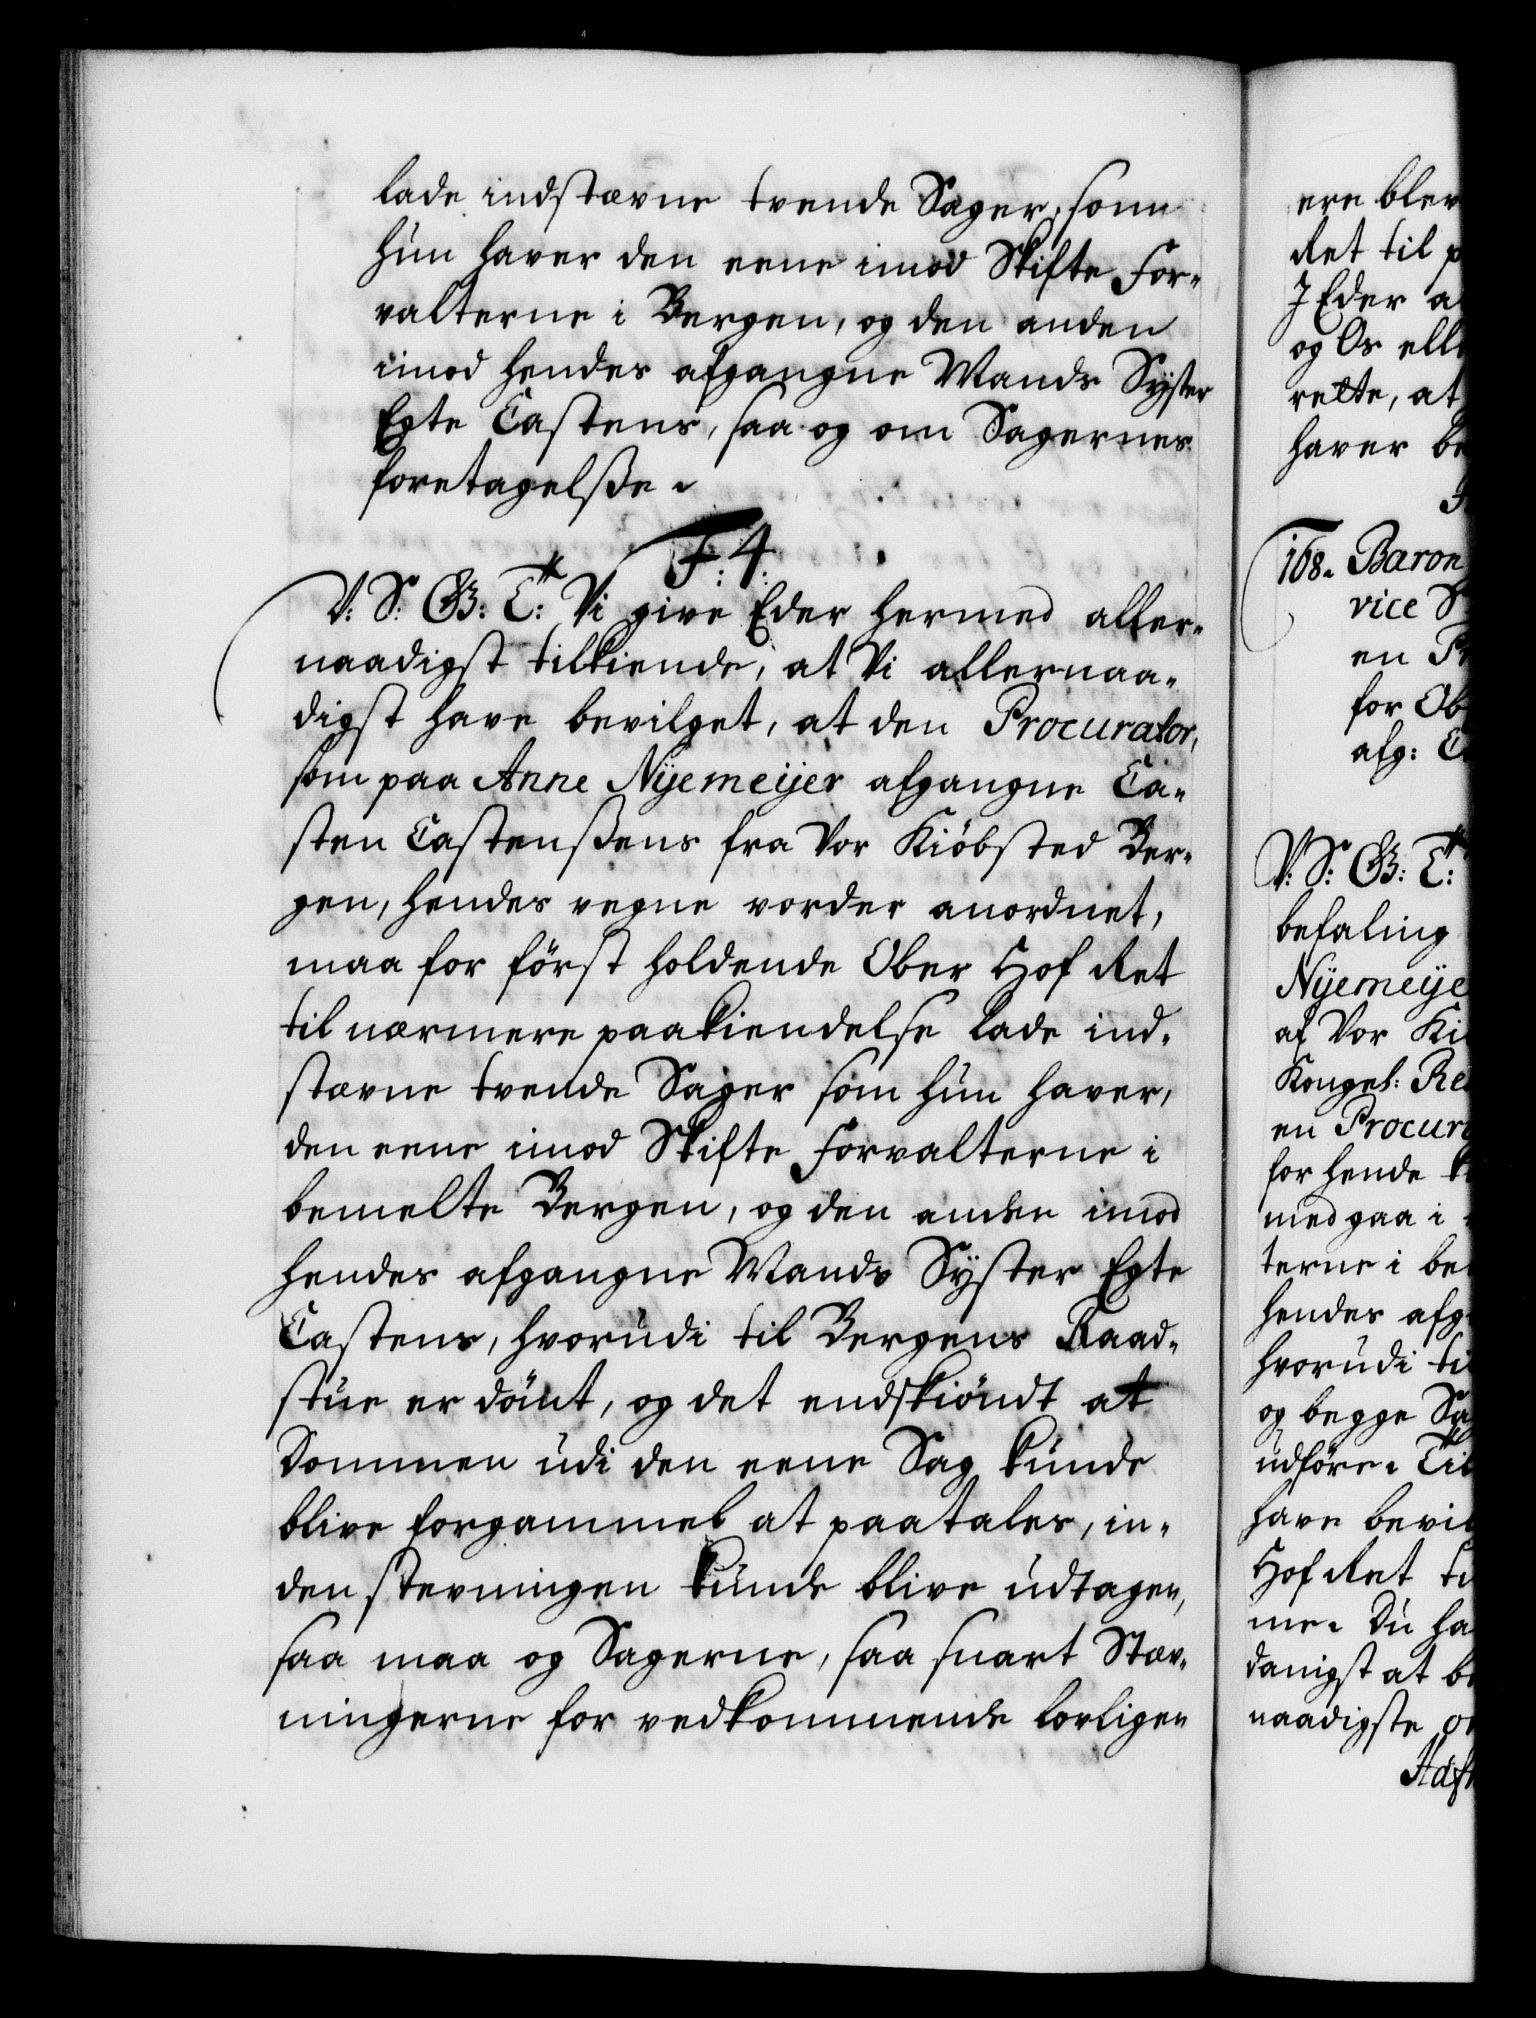 lade indstævne tvende Sager, som
hun haver den eene imod Skifte For-
valterne i Bergen, og den anden
imod hendes afgangne Mands Syster
Egte Castens, saa og om Sagernes
foretagelsße.
F. 4.
V: S: G: T: Vi give Eder hermed aller-
naadigst tilkiende, at Vi allernaa-
digst have bevilget, at den Procurator,
som paa Anne Nijemeijer afgangne Ca-
sten Castenßens fra Vor Kiöbsted Ber-
gen, hendes vegne vorder anordnet,
maa for först holdende Ober Hof Ret
til nærmere paakiendelse lade ind-
stævne tvende Sager som hun haver,
den eene imod Skifte Forvalterne i
bemelte Bergen, og den anden imod
hendes afgangne Mands Syster Egte
Castens, hvorudi til Bergens Raad-
stue er dömt, og det endskiöndt at
Dommen udi den eene Sag kunde
blive forgammel at paatales, in-
den stevningen kunde blive udtagen,
saa maa og Sagerne, saa snart Stæv-
ningerne for vedkommende lovligen
ere blev
Ret til p
I Eder a
og Os ell
rette, at
haver be
168. Baron
vice S
en Pr
for Ob
afg: C
V: S: G: T:
befaling
Nijemeije
af Vor Ki
Kongel: Re
en Procur
for hende
med gaa i
terne i be
hendes afg
hvorudi til
og begge Sa
udföre. Til
have bevil
Hof Ret ti
me. Du ha
danigst at be
naadigste or